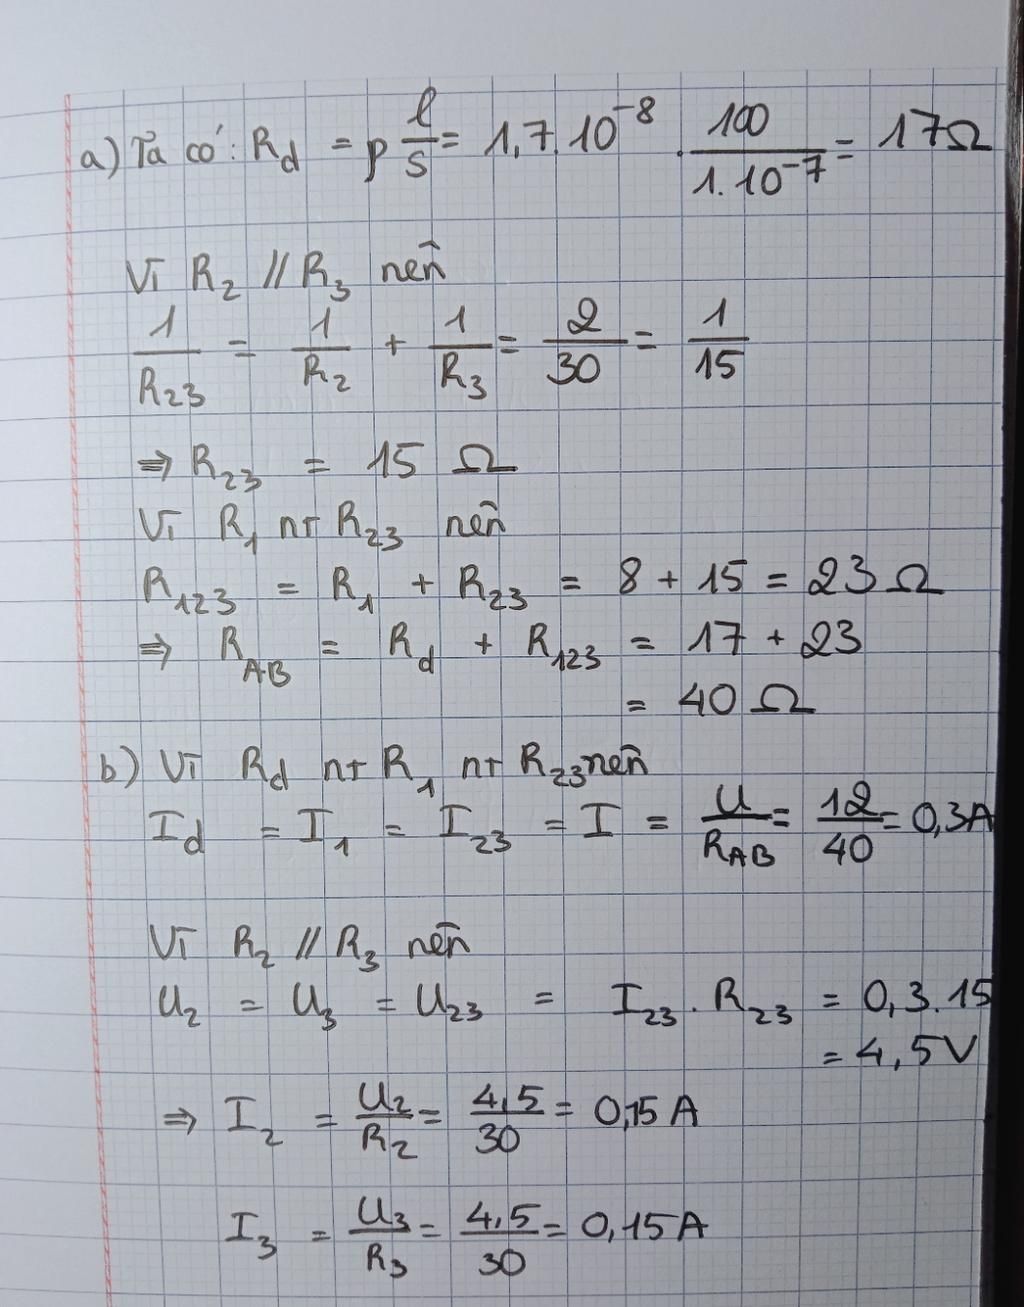 a) Ta có: R_d = ρ l/s = 1,7.10^-8 . 100/(1.10^-7) = 17Ω
Vì R_2 // R_3 nên
1/R_23 = 1/R_2 + 1/R_3 = 2/30 = 1/15
⇒ R_23 = 15 Ω
Vì R_1 nt R_23 nên
R_123 = R_1 + R_23 = 8 + 15 = 23 Ω
⇒ R_AB = R_d + R_123 = 17 + 23
= 40 Ω
b) Vì R_d nt R_1 nt R_23 nên
I_d = I_1 = I_23 = I = U/R_AB = 12/40 = 0,3A
Vì R_2 // R_3 nên
U_2 = U_3 = U_23 = I_23 . R_23 = 0,3.15
= 4,5V
⇒ I_2 = U_2/R_2 = 4,5/30 = 0,15A
I_3 = U_3/R_3 = 4,5/30 = 0,15A